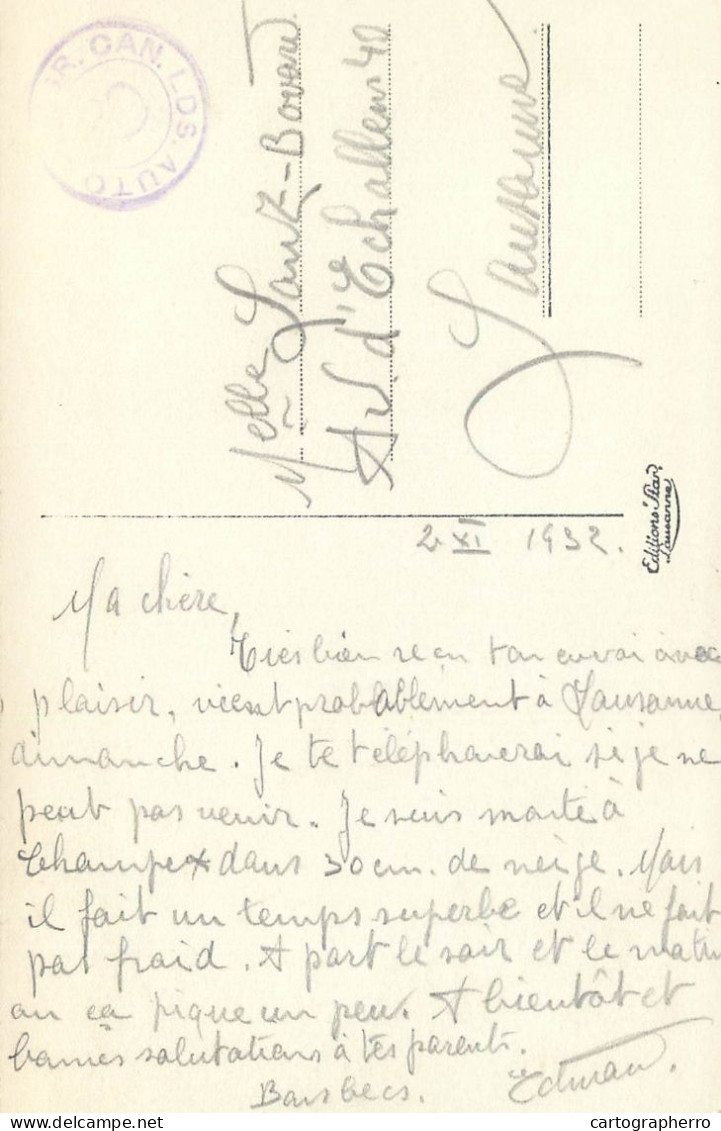 TR. CAN. LDS. AUTO
Melle Lantz-Bovard
Av. d'Echallens 40
Lausanne
Editions Star
Lausanne
2 XI 1932.
Ma chère,
Très bien reçu ton envoi avec
plaisir, vient probablement à Lausanne,
dimanche. Je te téléphonerai si je ne
peut pas venir. Je suis monté à
Champex dans 30 cm. de neige. Mais
il fait un temps superbe et il ne fait
pas froid. A part le soir et le matin
ou ça pique un peu. A bientôt et
bonnes salutations à tes parents.
Bons becs. Edmond.
cartographerro
delcampe.net